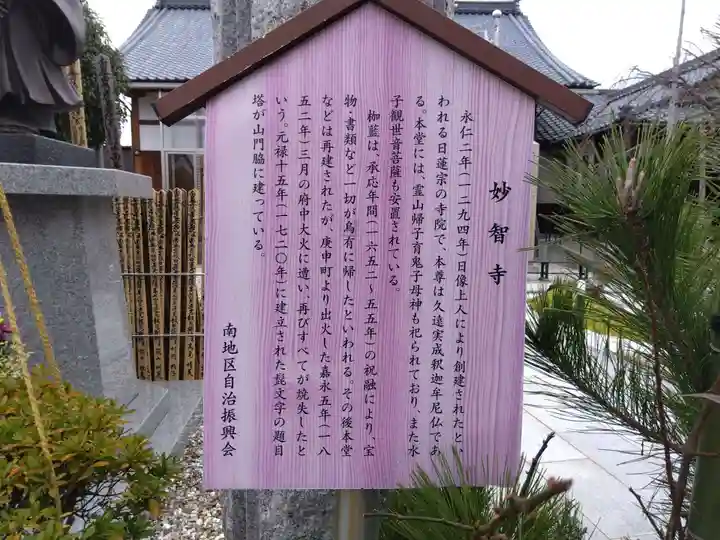 妙智寺
永仁二年(一二九四年)日像上人により創建されたと、い
われる日蓮宗の寺院で、本尊は久遠実成釈迦牟尼仏であ
る。本堂には、霊山帰子育鬼子母神も祀られており、また水
子観世音菩薩も安置されている。
枷藍は、承応年間(一六五二～五五年)の祝融により、宝
物・書類など一切が烏有に帰したといわれる。その後本堂
などは再建されたが、庚申町より出火した嘉永五年(一八
五二年)三月の府中大火に遭い、再びすべてが焼失したと
いう。元禄十五年(一七二〇年)に建立された髭文字の題目
塔が山門脇に建っている。
南地区自治振興会